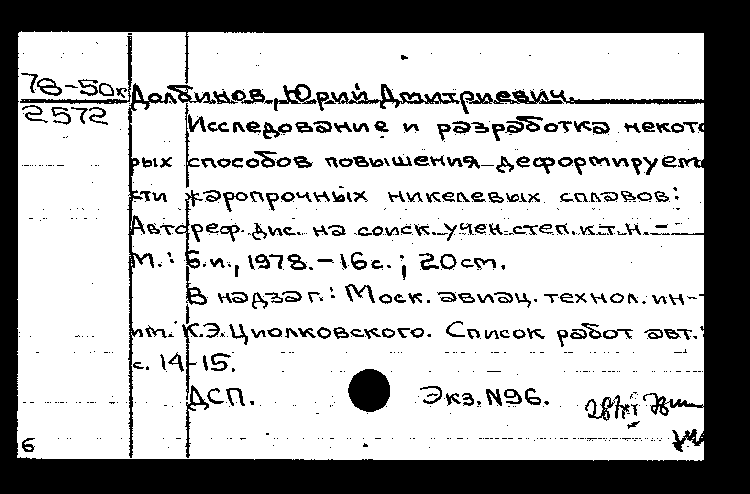 78-50к
2572
Долбинов, Юрий Дмитриевич.
Исследование и разработка некото
рых способов повышения деформируемо
сти жаропрочных никелевых сплавов:
Автореф. дис. на соиск. учен. степ. к.т.н. -
М.: Б.и., 1978. - 16с.; 20см.
В надзаг.: Моск. авиац. технол. ин-т
им. К.Э. Циолковского. Список работ авт.:
с. 14-15.
ДСП. Экз. №96.
6